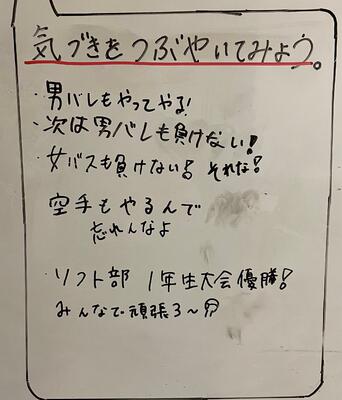 気づきをつぶやいてみよう。
・男バレもやってやる!
・次は男バレも負けない!
・女バスも負けない! それな!
空手もやるんで
忘れんなよ
・ソフト部 1年生大会優勝!
みんなで頑張ろ〜